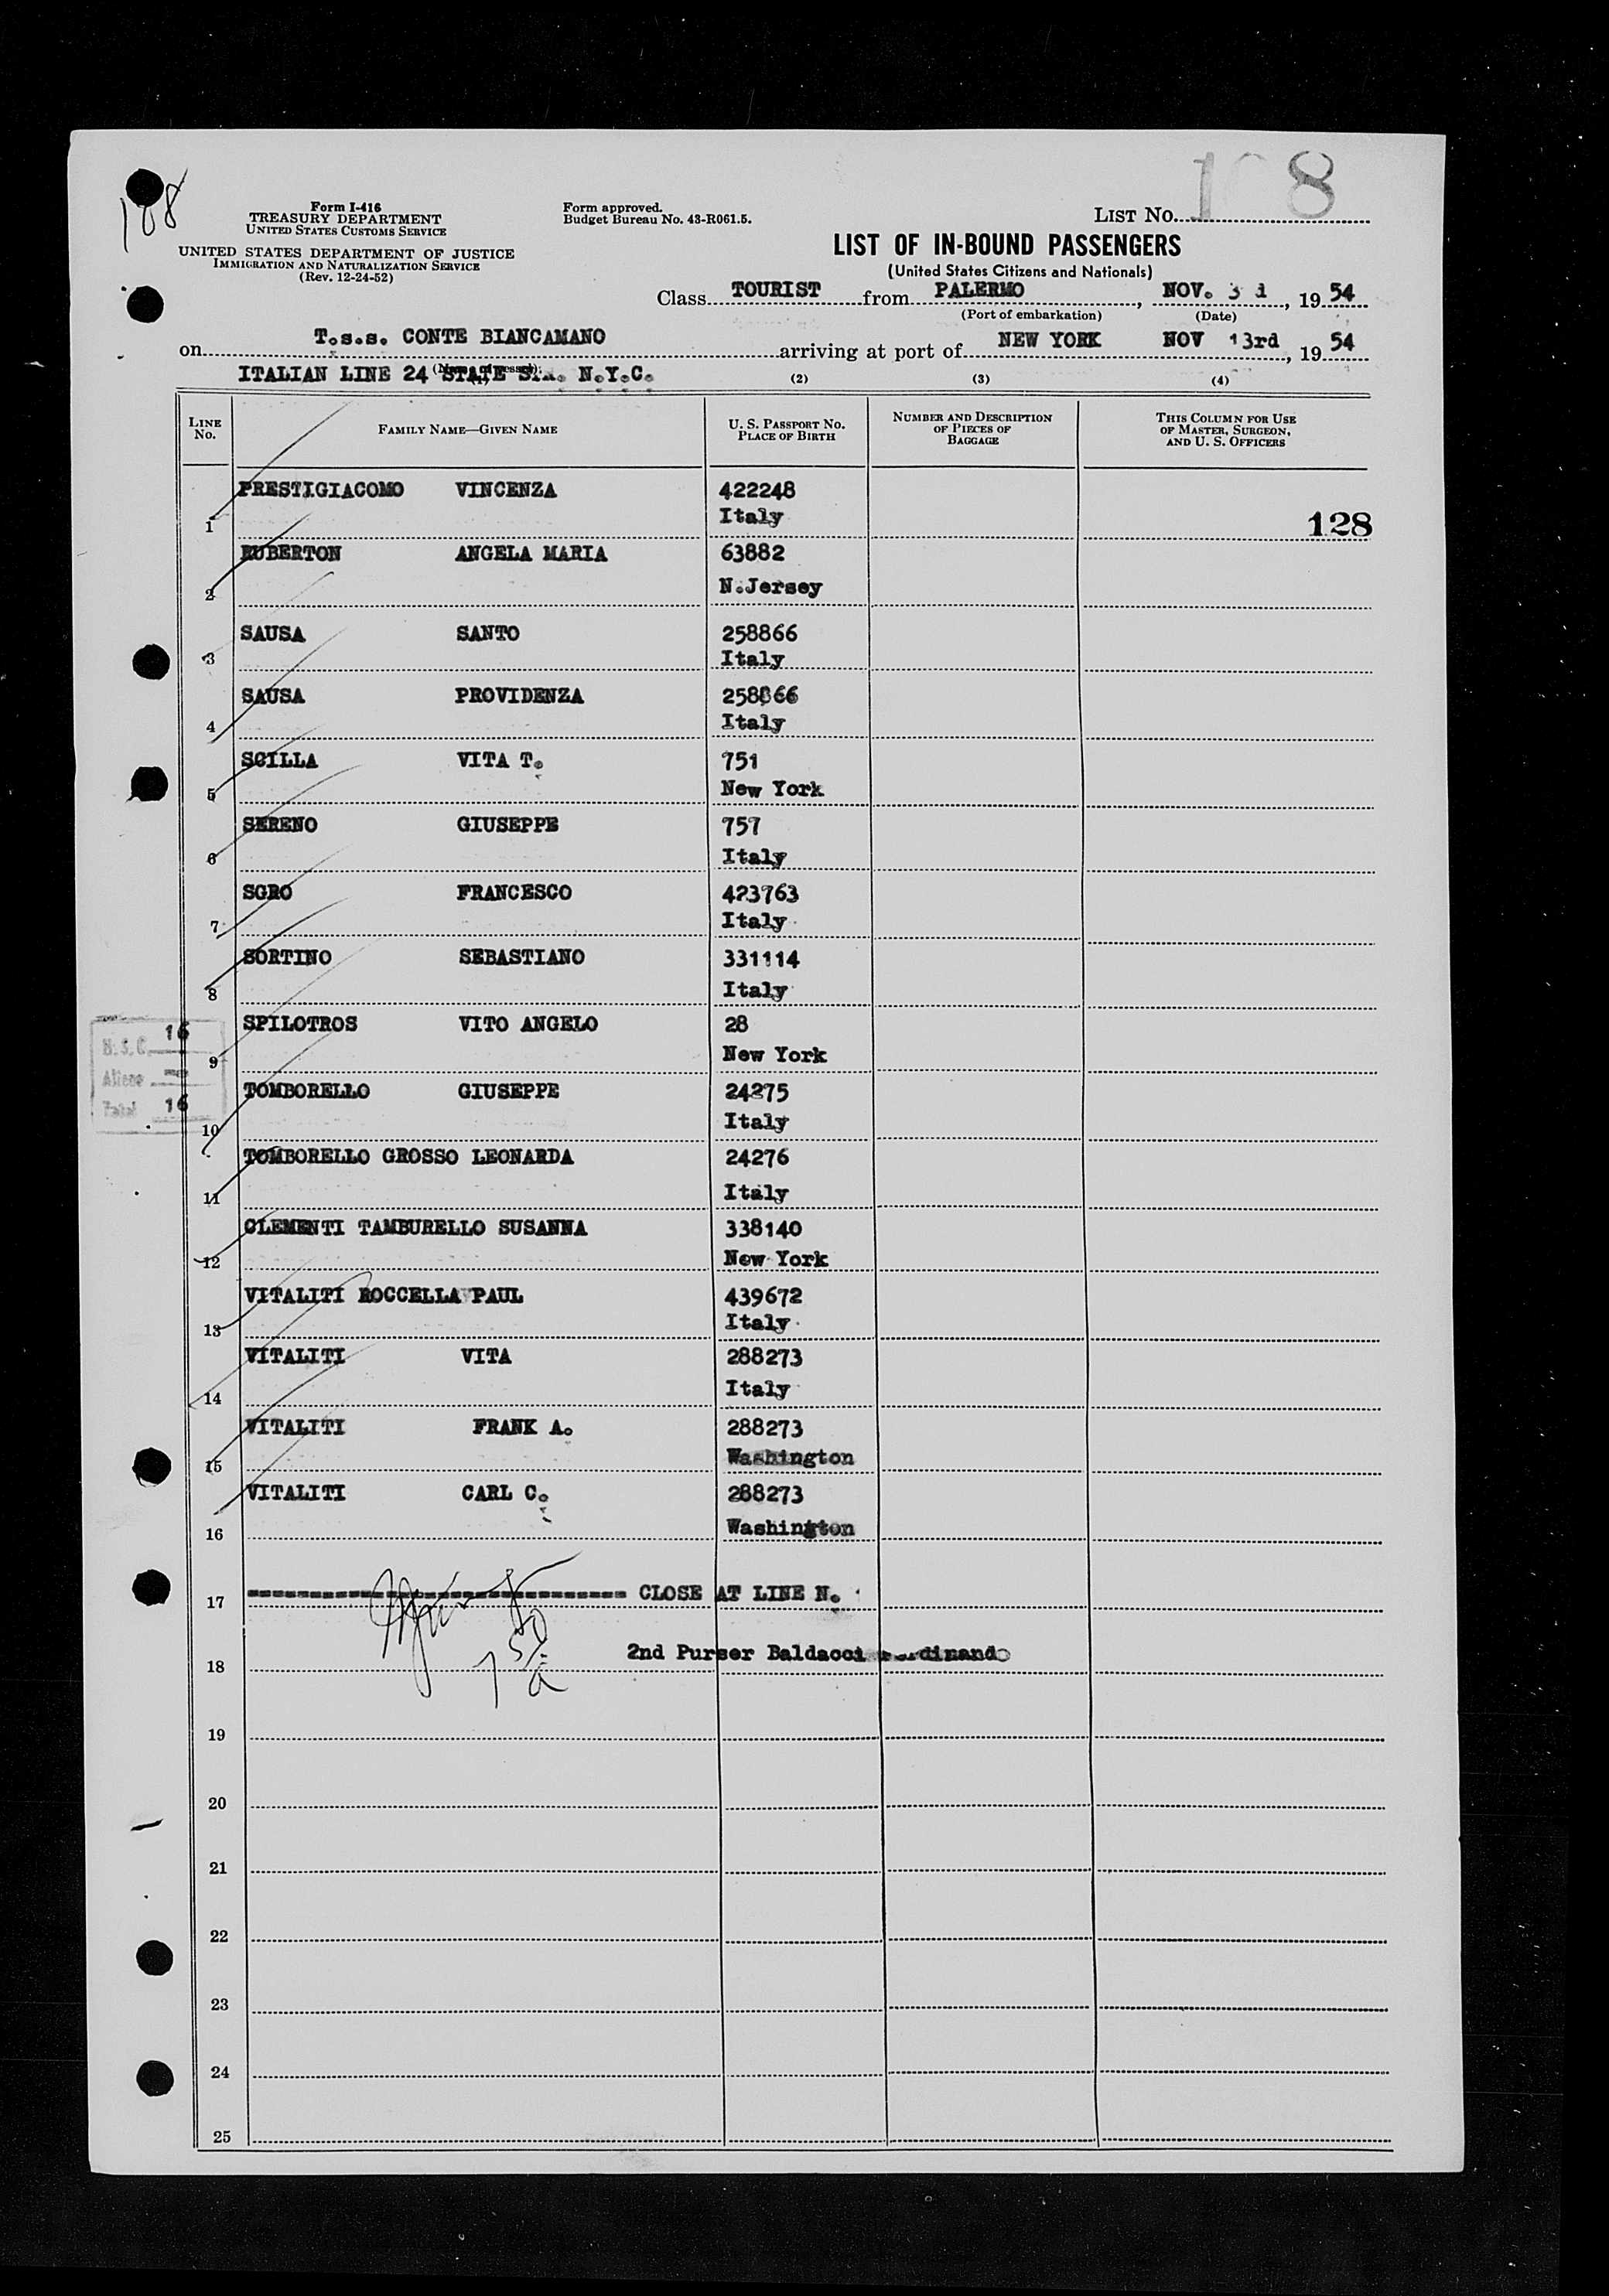 108
Form I-416
TREASURY DEPARTMENT
UNITED STATES CUSTOMS SERVICE
UNITED STATES DEPARTMENT OF JUSTICE
IMMIGRATION AND NATURALIZATION SERVICE
(Rev. 12-24-52)
Form approved.
Budget Bureau No. 43-R061.5.
LIST No. 1 8
LIST OF IN-BOUND PASSENGERS
(United States Citizens and Nationals)
Class TOURIST from PALERMO, NOV. 3 d, 1954
(Port of embarkation) (Date)
on T.s.s. CONTE BIANCAMANO arriving at port of NEW YORK NOV 13rd, 1954
ITALIAN LINE 24 STATE N.Y.C. (2) (3) (4)
LINE No. FAMILY NAME—GIVEN NAME U. S. PASSPORT NO. PLACE OF BIRTH NUMBER AND DESCRIPTION OF PIECES OF BAGGAGE THIS COLUMN FOR USE OF MASTER, SURGEON, AND U. S. OFFICERS
PRESTIGIACOMO VINCENZA 422248
1 Italy 128
RUBERTON ANGELA MARIA 63882
2 N.Jersey
SAUSA SANTO 258866
3 Italy
SAUSA PROVIDENZA 258866
4 Italy
SCILLA VITA T. 751
5 New York
SERENO GIUSEPPE 757
6 Italy
SGRO FRANCESCO 423763
7 Italy
SORTINO SEBASTIANO 331114
8 Italy
SPILOTROS VITO ANGELO 28
9 New York
U.S.C. 16
Aliens
Total 16
TOMBORELLO GIUSEPPE 24275
10 Italy
TOMBORELLO GROSSO LEONARDA 24276
11 Italy
CLEMENTI TAMBURELLO SUSANNA 338140
12 New York
VITALITI ROCCELLA PAUL 439672
13 Italy
VITALITI VITA 288273
14 Italy
VITALITI FRANK A. 288273
15 Washington
VITALITI CARL C. 288273
16 Washington
17 CLOSE AT LINE N.
18 2nd Purser Baldacci
19
20
21
22
23
24
25